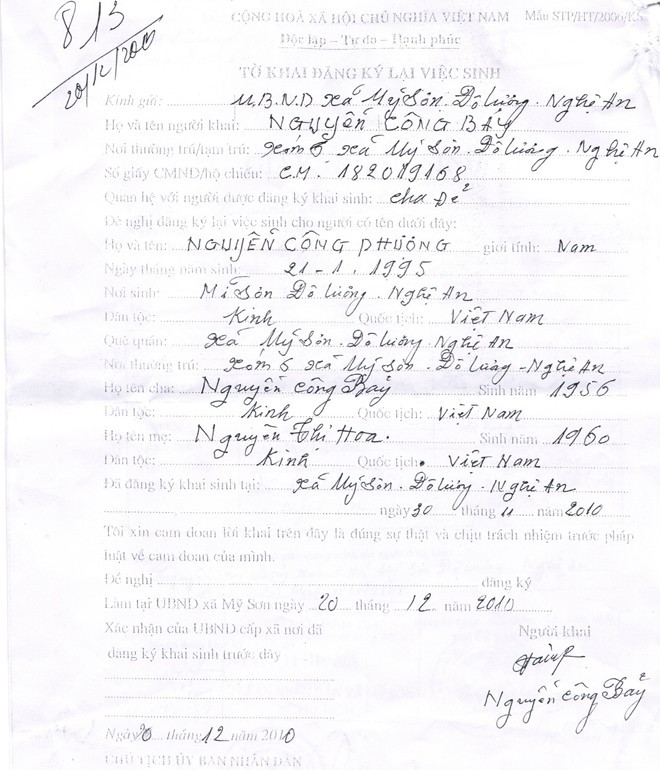 813
20/12/2010
CỘNG HOÀ XÃ HỘI CHỦ NGHĨA VIỆT NAM Mẫu STP/HT/2006/KS
Độc lập – Tự do – Hạnh phúc
TỜ KHAI ĐĂNG KÝ LẠI VIỆC SINH
Kính gửi: U.B.N.D xã Mỹ Sơn. Đô lương. Nghệ An
Họ và tên người khai: NGUYỄN CÔNG BẢY
Nơi thường trú/tạm trú: xóm 6 xã Mỹ Sơn. Đô lương. Nghệ An
Số giấy CMND/hộ chiếu: C.M. 182019168
Quan hệ với người được đăng ký khai sinh: cha Đẻ
Đề nghị đăng ký lại việc sinh cho người có tên dưới đây:
Họ và tên: NGUYỄN CÔNG PHƯỢNG giới tính: Nam
Ngày tháng năm sinh: 21-1.1995
Nơi sinh: Mĩ Sơn Đô lương. Nghệ An
Dân tộc: Kinh Quốc tịch: Việt Nam
Quê quán: xã Mỹ Sơn. Đô lương. Nghệ An
Nơi thường trú: xóm 6 xã Mỹ Sơn. Đô lương - Nghệ An
Họ tên cha: Nguyễn Công Bảy Sinh năm 1956
Dân tộc: Kinh Quốc tịch: Việt Nam
Họ tên mẹ: Nguyễn Thị Hoa. Sinh năm 1960
Dân tộc: Kinh Quốc tịch: Việt Nam
Đã đăng ký khai sinh tại: xã Mỹ Sơn. Đô lương. Nghệ An
ngày 30 tháng 11 năm 2010
Tôi xin cam đoan lời khai trên đây là đúng sự thật và chịu trách nhiệm trước pháp
luật về cam đoan của mình.
Đề nghị đăng ký
Làm tại UBND xã Mỹ Sơn ngày 20 tháng 12 năm 2010
Xác nhận của UBND cấp xã nơi đã Người khai
đăng ký khai sinh trước đây
Nguyễn Công Bảy
Ngày 20 tháng 12 năm 2010
CHỦ TỊCH ỦY BAN NHÂN DÂN